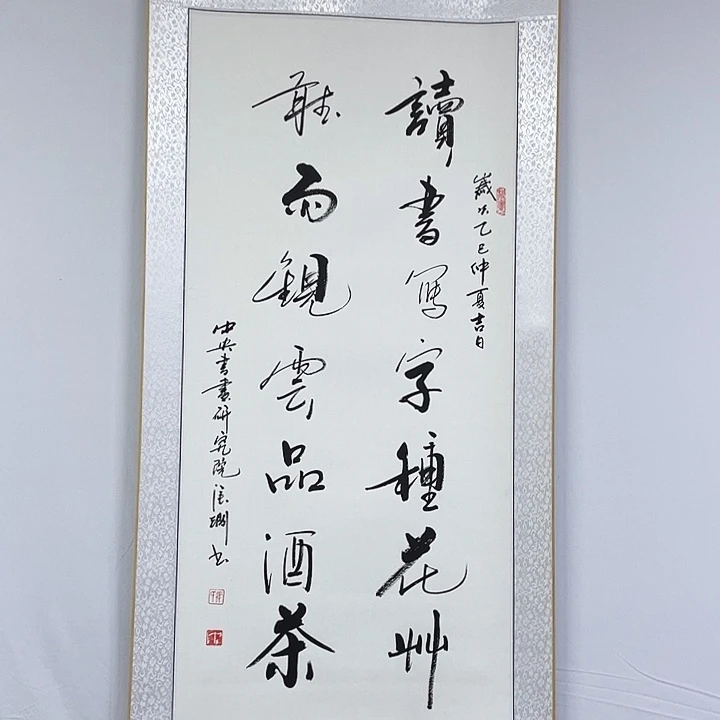 歲次乙巳仲夏吉日
讀書寫字種花艸
聽雨觀雲品酒茶
中央書畫研究院
书